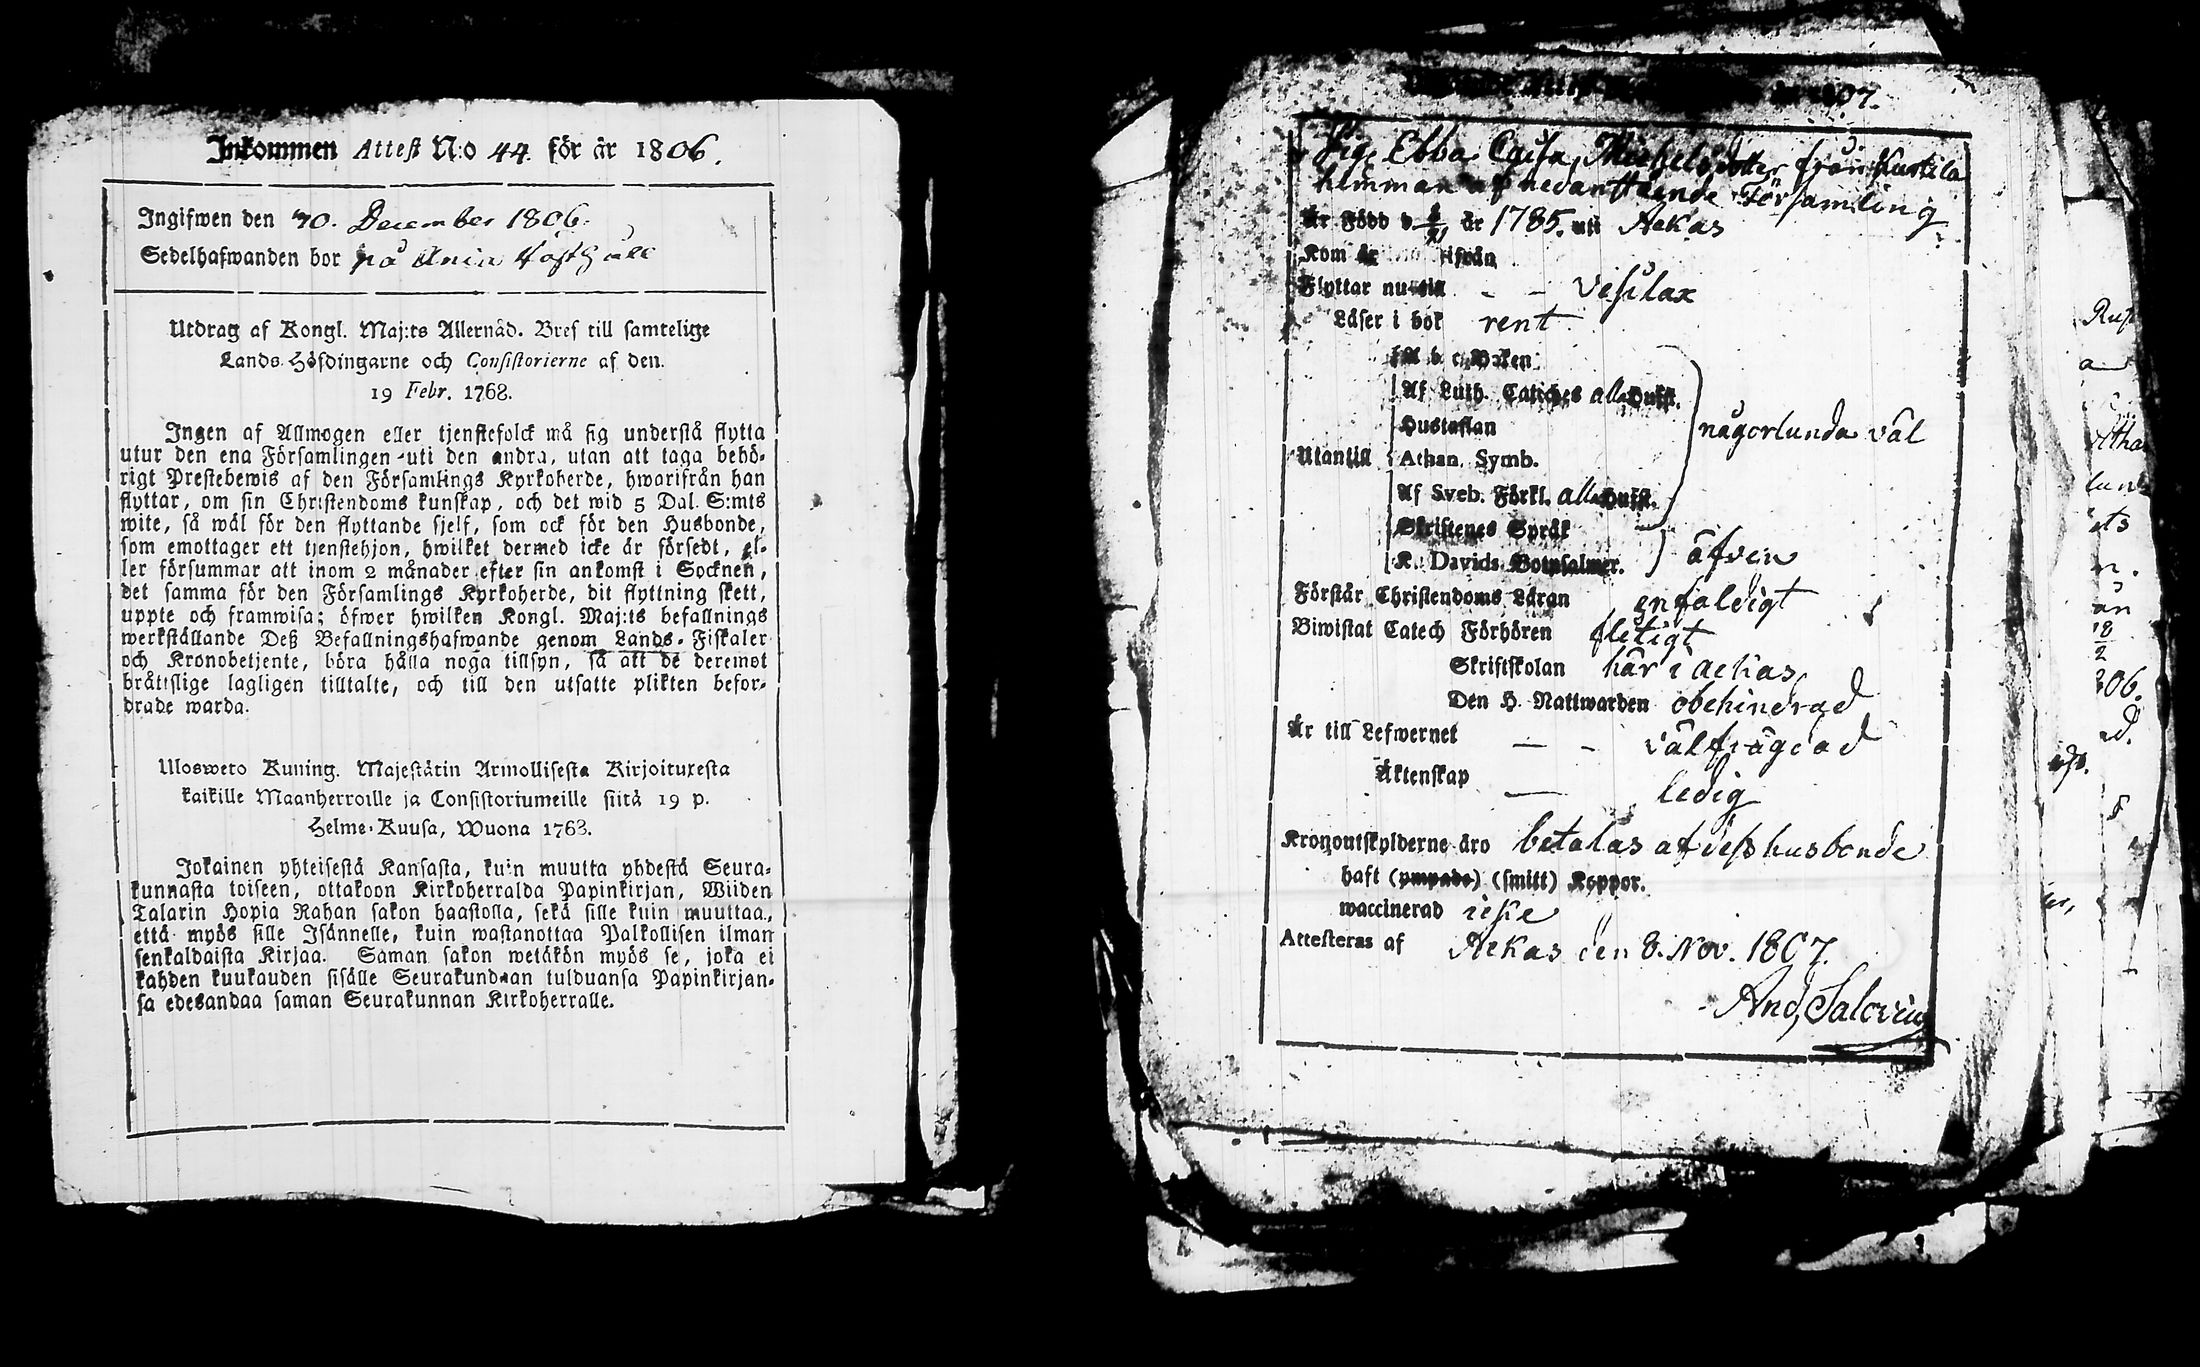 Inkommen Attest N:o 44. för år 1806.
Ingifwen den 30. December 1806.
Sedelhafwanden bor på
Utdrag af Kongl. Maj:ts Allernåd. Bref till samtelige
Lands-Höfdingarne och Consistorierne af den.
19 Febr. 1768.
Ingen af Allmogen eller tjenstefolck må sig understå flytta
utur den ena Församlingen uti den andra, utan att taga behö-
rigt Prestebewis af den Församlings Kyrkoherde, hwarifrån han
flyttar, om sin Christendoms kunskap, och det wid 5 Dal. S:mts
wite, så wäl för den flyttande sjelf, som ock för den Husbonde,
som emottager ett tjenstehjon, hwilket dermed icke är försedt, el-
ler försummar att inom 2 månader efter sin ankomst i Socknen,
det samma för den Församlings Kyrkoherde, dit flyttning skett,
uppte och framwisa; öfwer hwilken Kongl. Maj:ts befallnings
werkställande Deß Befallningshafwande genom Lands-Fiskaler
och Kronobetjente, böra hålla noga tillsyn, så att de deremot
bråttslige lagligen tilltalte, och till den utsatte plikten befor-
drade warda.
Ulosweto Kuning. Majestätin Armollisesta Kirjoituxesta
kaikille Maanherroille ja Consistoriumeille siitä 19 p.
Helme-Kuusa, Wuona 1768.
Jokainen yhteisestä Kansasta, kuin muutta yhdestä Seura-
kunnasta toiseen, ottakoon Kirkoherralda Papinkirjan, Wiiden
Talarin Hopia Rahan sakon haastolla, sekä sille kuin muuttaa,
että myös sille Isännelle, kuin wastanottaa Palkollisen ilman
senkaldaista Kirjaa. Saman sakon wetäkön myös se, joka ei
kahden kuukauden sisälle Seurakundaan tulduansa Papinkirjan-
sa edesandaa saman Seurakunnan Kirkoherralle.
07.
Pig. Ebba Caisa Michelsdotter från Kurtila
hemman af nedanstående Församling
Är Född d. år 1785. uti Ackas
Kom år ifrån
Flyttar nu till - - Vesilax
Läser i bok rent
A b c Boken
Af Luth. Catiches alla Hufst.
Hustaflan
någorlunda väl
Utantill Athan. Symb.
Af Sveb. Förkl. alla Hufst.
Skriftenes Språk
K. Davids Botpsalmer. äfven
Förstår Christendoms Läran enfaldigt
Biwistat Catech Förhören fletigt
Skriftskolan här i Ackas
Den H. Nattwarden obehindrad
Är till Lefwernet — - välfrägdad
Äktenskap — ledig
Kronoutskylderne äro betalas af deß husbonde
haft (ympade) (smitt) Koppor.
waccinerad icke
Attesteras af Ackas den 8. Nov. 1807.
And. Salovius